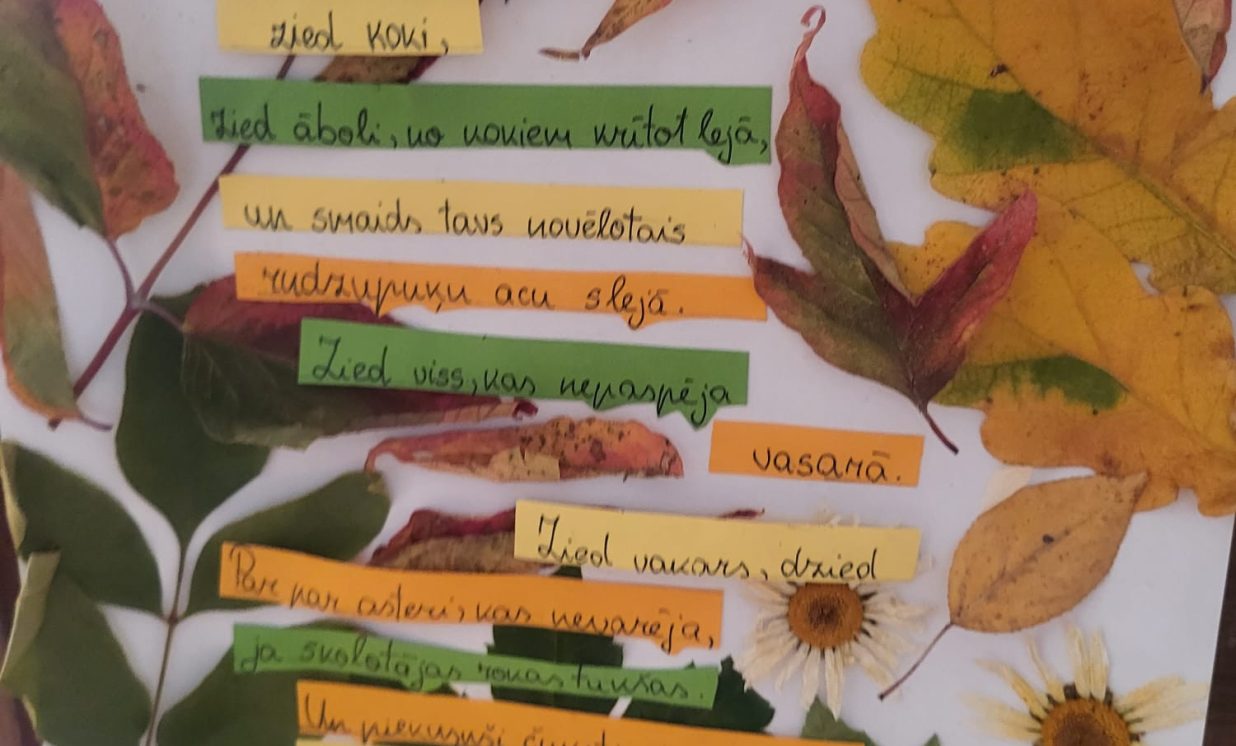 zied koki,
Zied āboli, no kokiem krītot lejā,
un smaids tavs novēlotais
rudzupuķu acu slejā.
Zied viss, kas nepaspēja
vasarā.
Zied vakars, dzied
Par asteri, kas nevarēja,
ja skolotājas rokas tukšas.
Un piekusuši